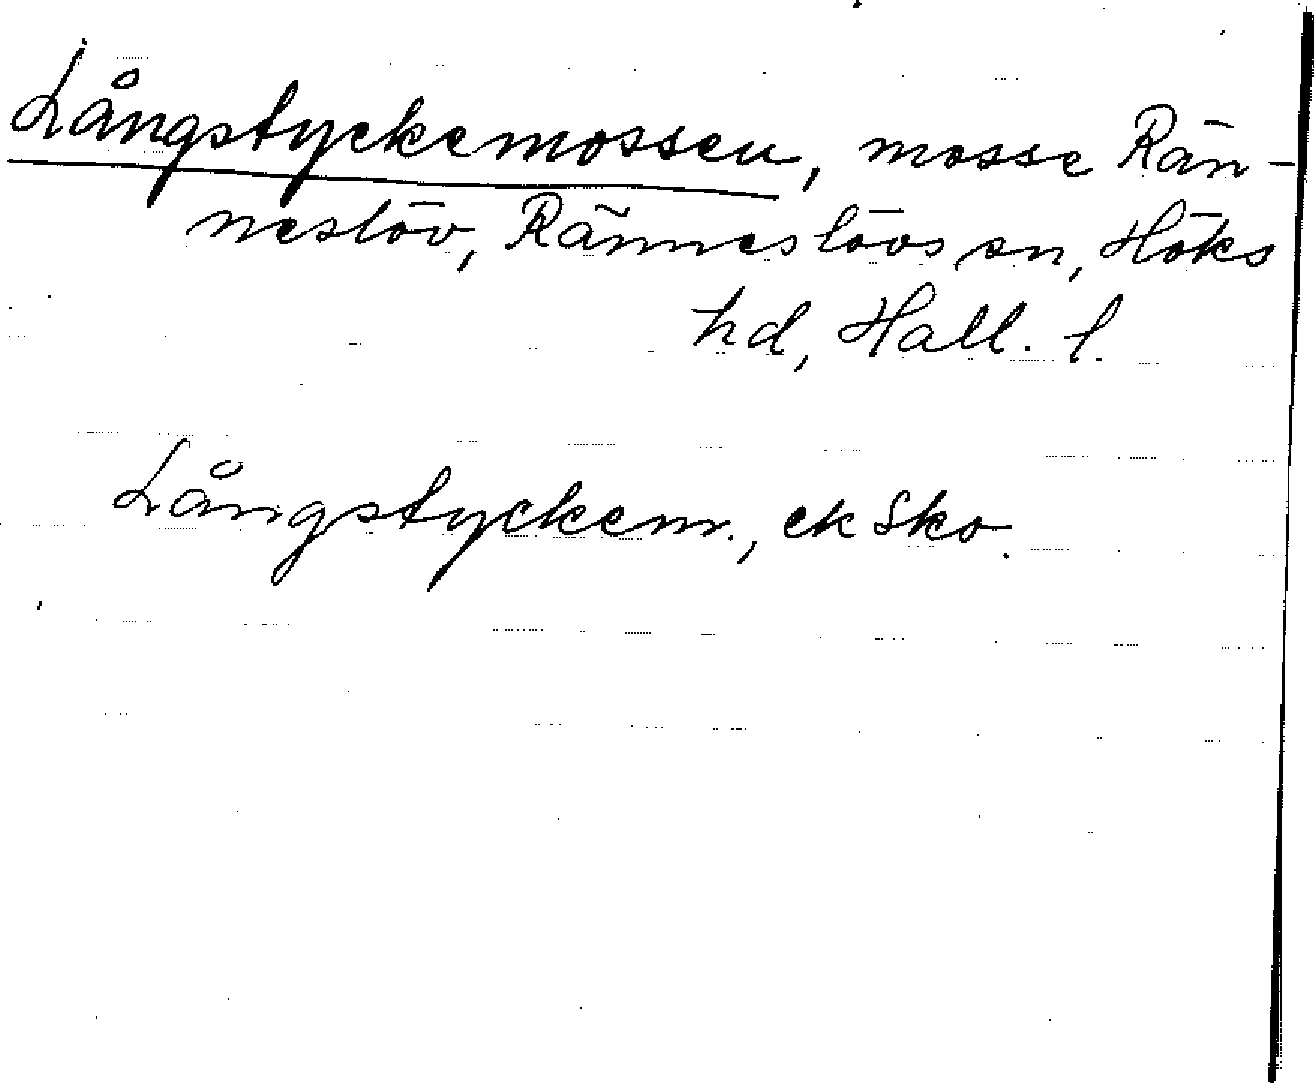 Långstyckemossen, mosse Rän-
neslöv, Ränneslövs sn, Höks
hd, Hall. l.
Långstyckem., ek Sko.